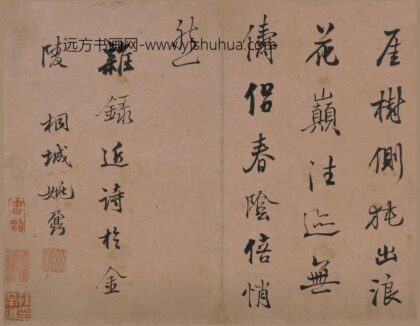 厓樹側純出浪
花巔注迹無
儔侶春陰倍悄
然
雜錄近詩於金
陵 桐城姚
远方书画网--www.yfshuhua.com